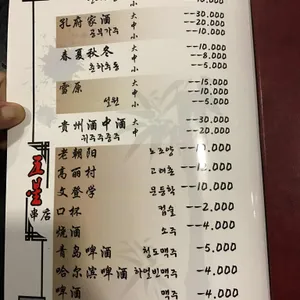 小 --10.000
孔府家酒 大 --30.000
공부가주 中 --20.000
小 --10.000
春夏秋冬 中 --10.000
춘하추동 --8.000
小 --5.000
雪原 大 --15.000
中 --10.000
설원 小 --5.000
贵州酒中酒 大 --30.000
귀주주중주 中 --20.000
老朝阳 노조양 --10.000
高丽村 고려촌 --10.000
文登学 문등학 --10.000
口杯 컵술 --2.000
烧酒 소주 --4.000
青岛啤酒 청도맥주 --5.000
哈尔滨啤酒 하얼빈맥주 --4.000
啤酒 맥주 --4.000
串店